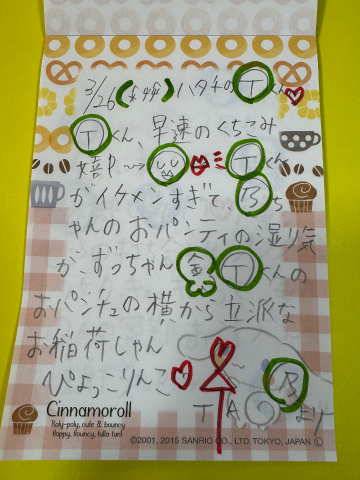 3/26(木) ハタチのTくん
Tくん、早速のくちこみ
嬉P〜→ Tくん
がイケメンすぎて、Bち
ゃんのおパンティの湿り気
が、ずっちゃん 金 Tくんの
おパンチュの横から立派な
お稲荷しゃん
ぴょっこりんこ B
T A より
Cinnamoroll
Roly-poly, cute & bouncy
floppy, flouncy, lulla fun!
©2001, 2015 SANRIO CO., LTD. TOKYO, JAPAN Ⓛ